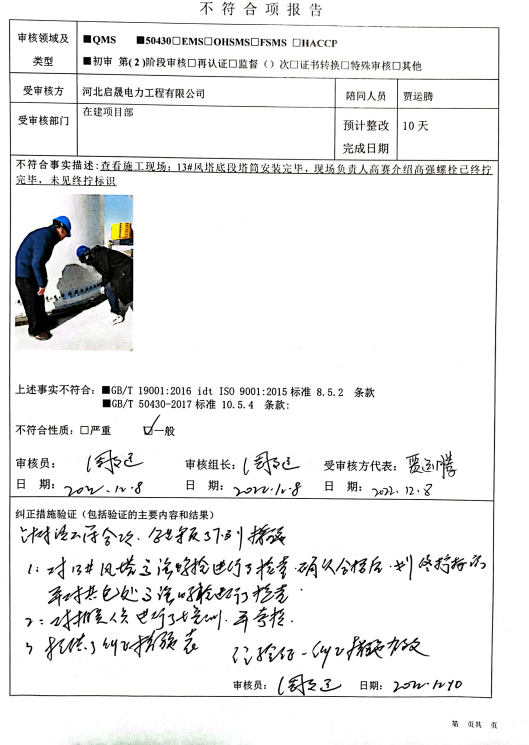 不符合项报告
审核领域及
类型
■QMS ■50430□EMS□OHSMS□FSMS □HACCP
■初审 第(2)阶段审核□再认证□监督（）次□证书转换□特殊审核□其他
受审核方 河北启晟电力工程有限公司 陪同人员 贾运腾
受审核部门 在建项目部 预计整改 10天
完成日期
不符合事实描述:查看施工现场：13#风塔底段塔筒安装完毕，现场负责人高赛介绍高强螺栓已终拧
完毕，未见终拧标识
上述事实不符合：■GB/T 19001:2016 idt ISO 9001:2015标准 8.5.2 条款
■GB/T 50430-2017 标准 10.5.4 条款:
不符合性质：□严重 ☑一般
审核员： 审核组长： 受审核方代表：贾运腾
日 期：2022.12.8 日 期：2022.12.8 日 期：2022.12.8
纠正措施验证（包括验证的主要内容和结果）
针对该不符合项，企业采取了下列措施
1：对13#风塔高强螺栓进行了检查，确认合格后，划终拧标识
并对其它处高强螺栓进行了检查
2：对相关人员进行了培训，并考核.
3 提供了纠正措施表 经验证-纠正措施有效
审核员： 日期：2022.12.10
第 页共 页